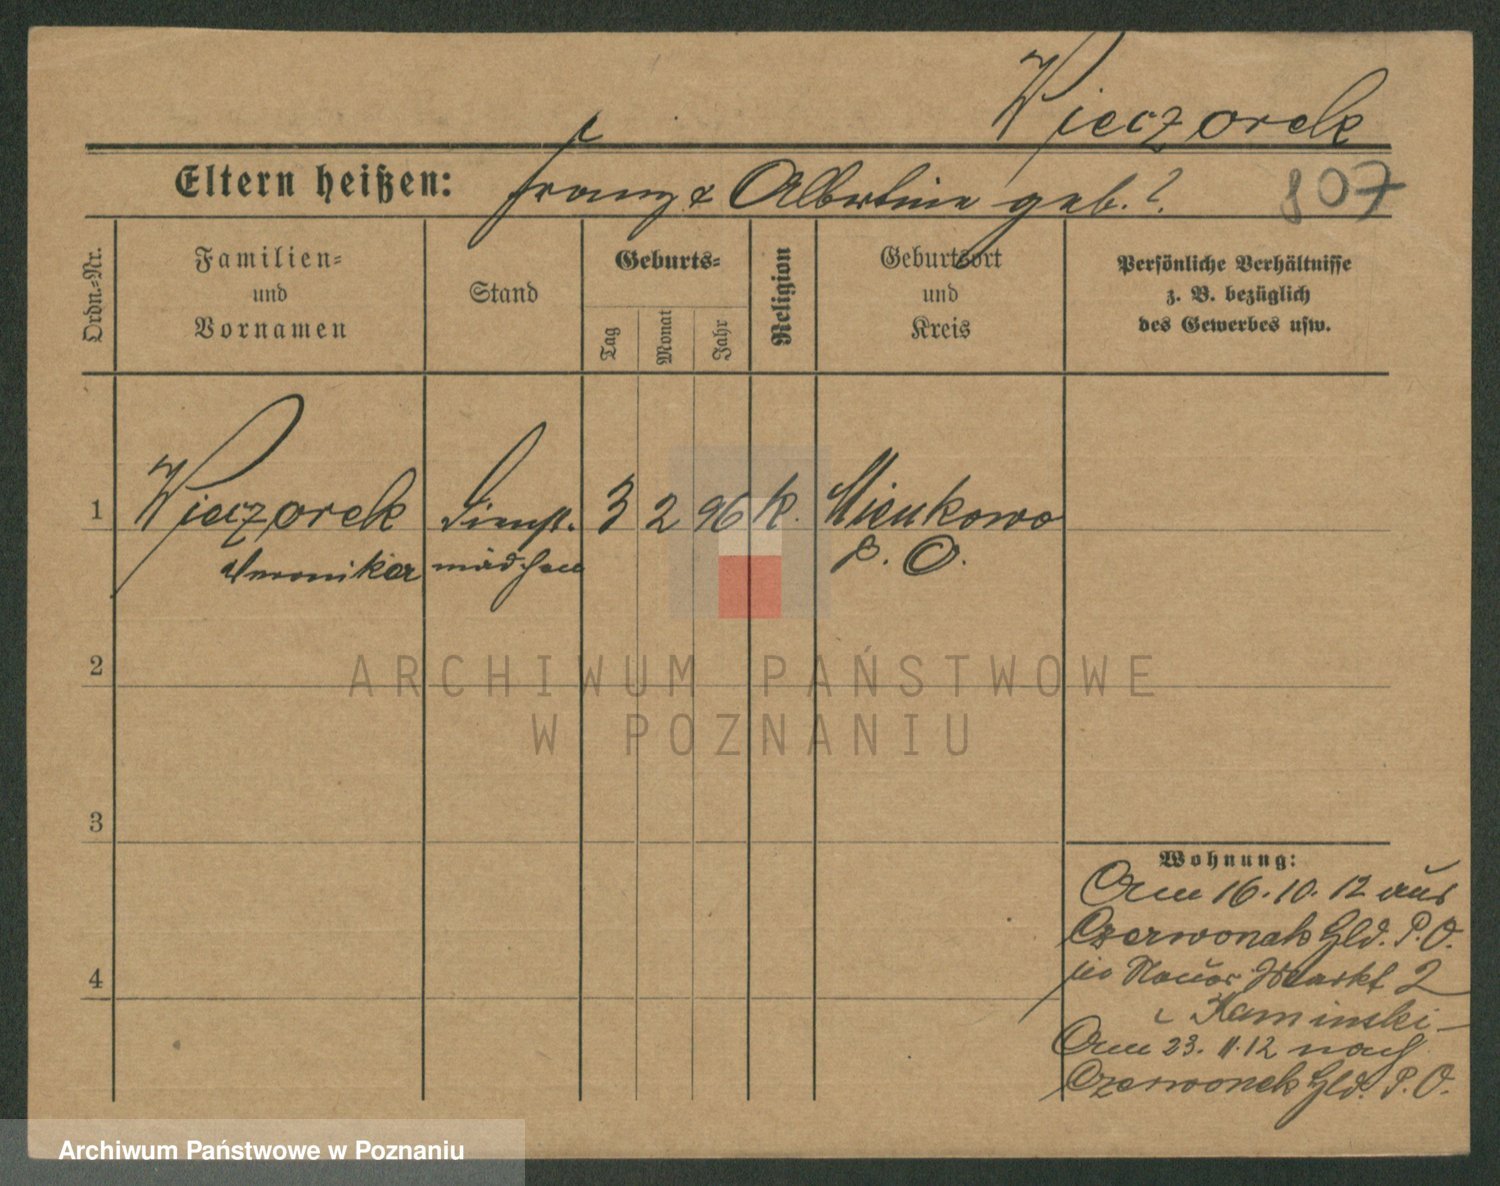 Wieczorek
Eltern heißen: Franz & Albertine geb. ?
807
Ordn.-Nr.
Familien-
und
Vornamen
Stand
Geburts-
Tag
Monat
Jahr
Religion
Geburtsort
und
Kreis
Persönliche Verhältnisse
z. B. bezüglich
des Gewerbes usw.
1 Wieczorek Dienst- 3 2 96 k. Mienkowo
Veronika mädchen P. O.
2
3
4
Wohnung:
Am 16.10.12 aus
Czerwonak Gld. P. O.
Neuer Markt 2
Kaminski
Am 23.11.12 nach
Czerwonak Gld. P. O.
ARCHIWUM PAŃSTWOWE
W POZNANIU
Archiwum Państwowe w Poznaniu